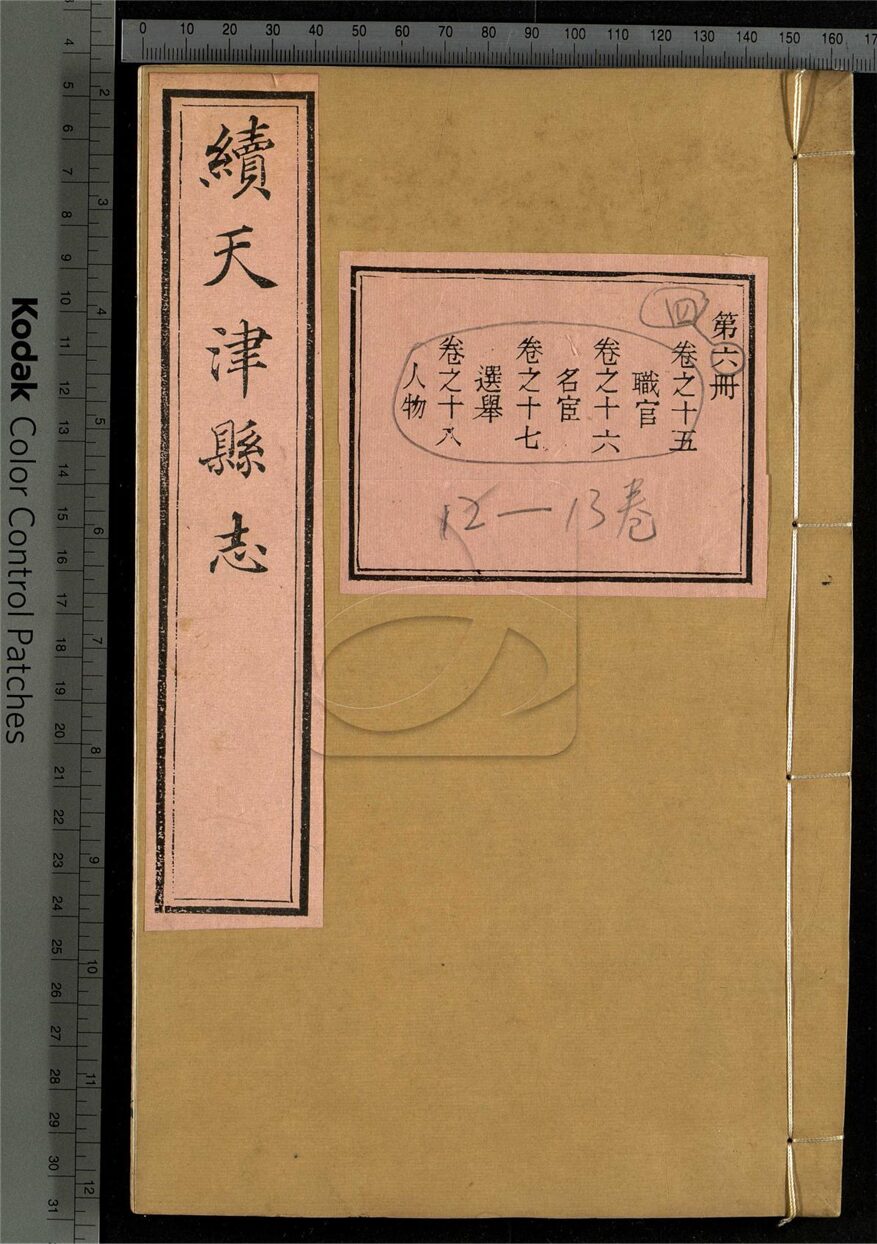 續天津縣志
第六冊
四
卷之十五
職官
卷之十六
名宦
卷之十七
選舉
卷之十八
人物
12—13卷
Kodak Color Control Patches
0 10 20 30 40 50 60 70 80 90 100 110 120 130 140 150 160 17
3 4 5 6 7 8 9 10 11 12 13 14 15 16 17 18 19 20 21 22 23 24 25 26 27 28 29 30 31
2 3 4 5 6 7 8 9 10 11 12